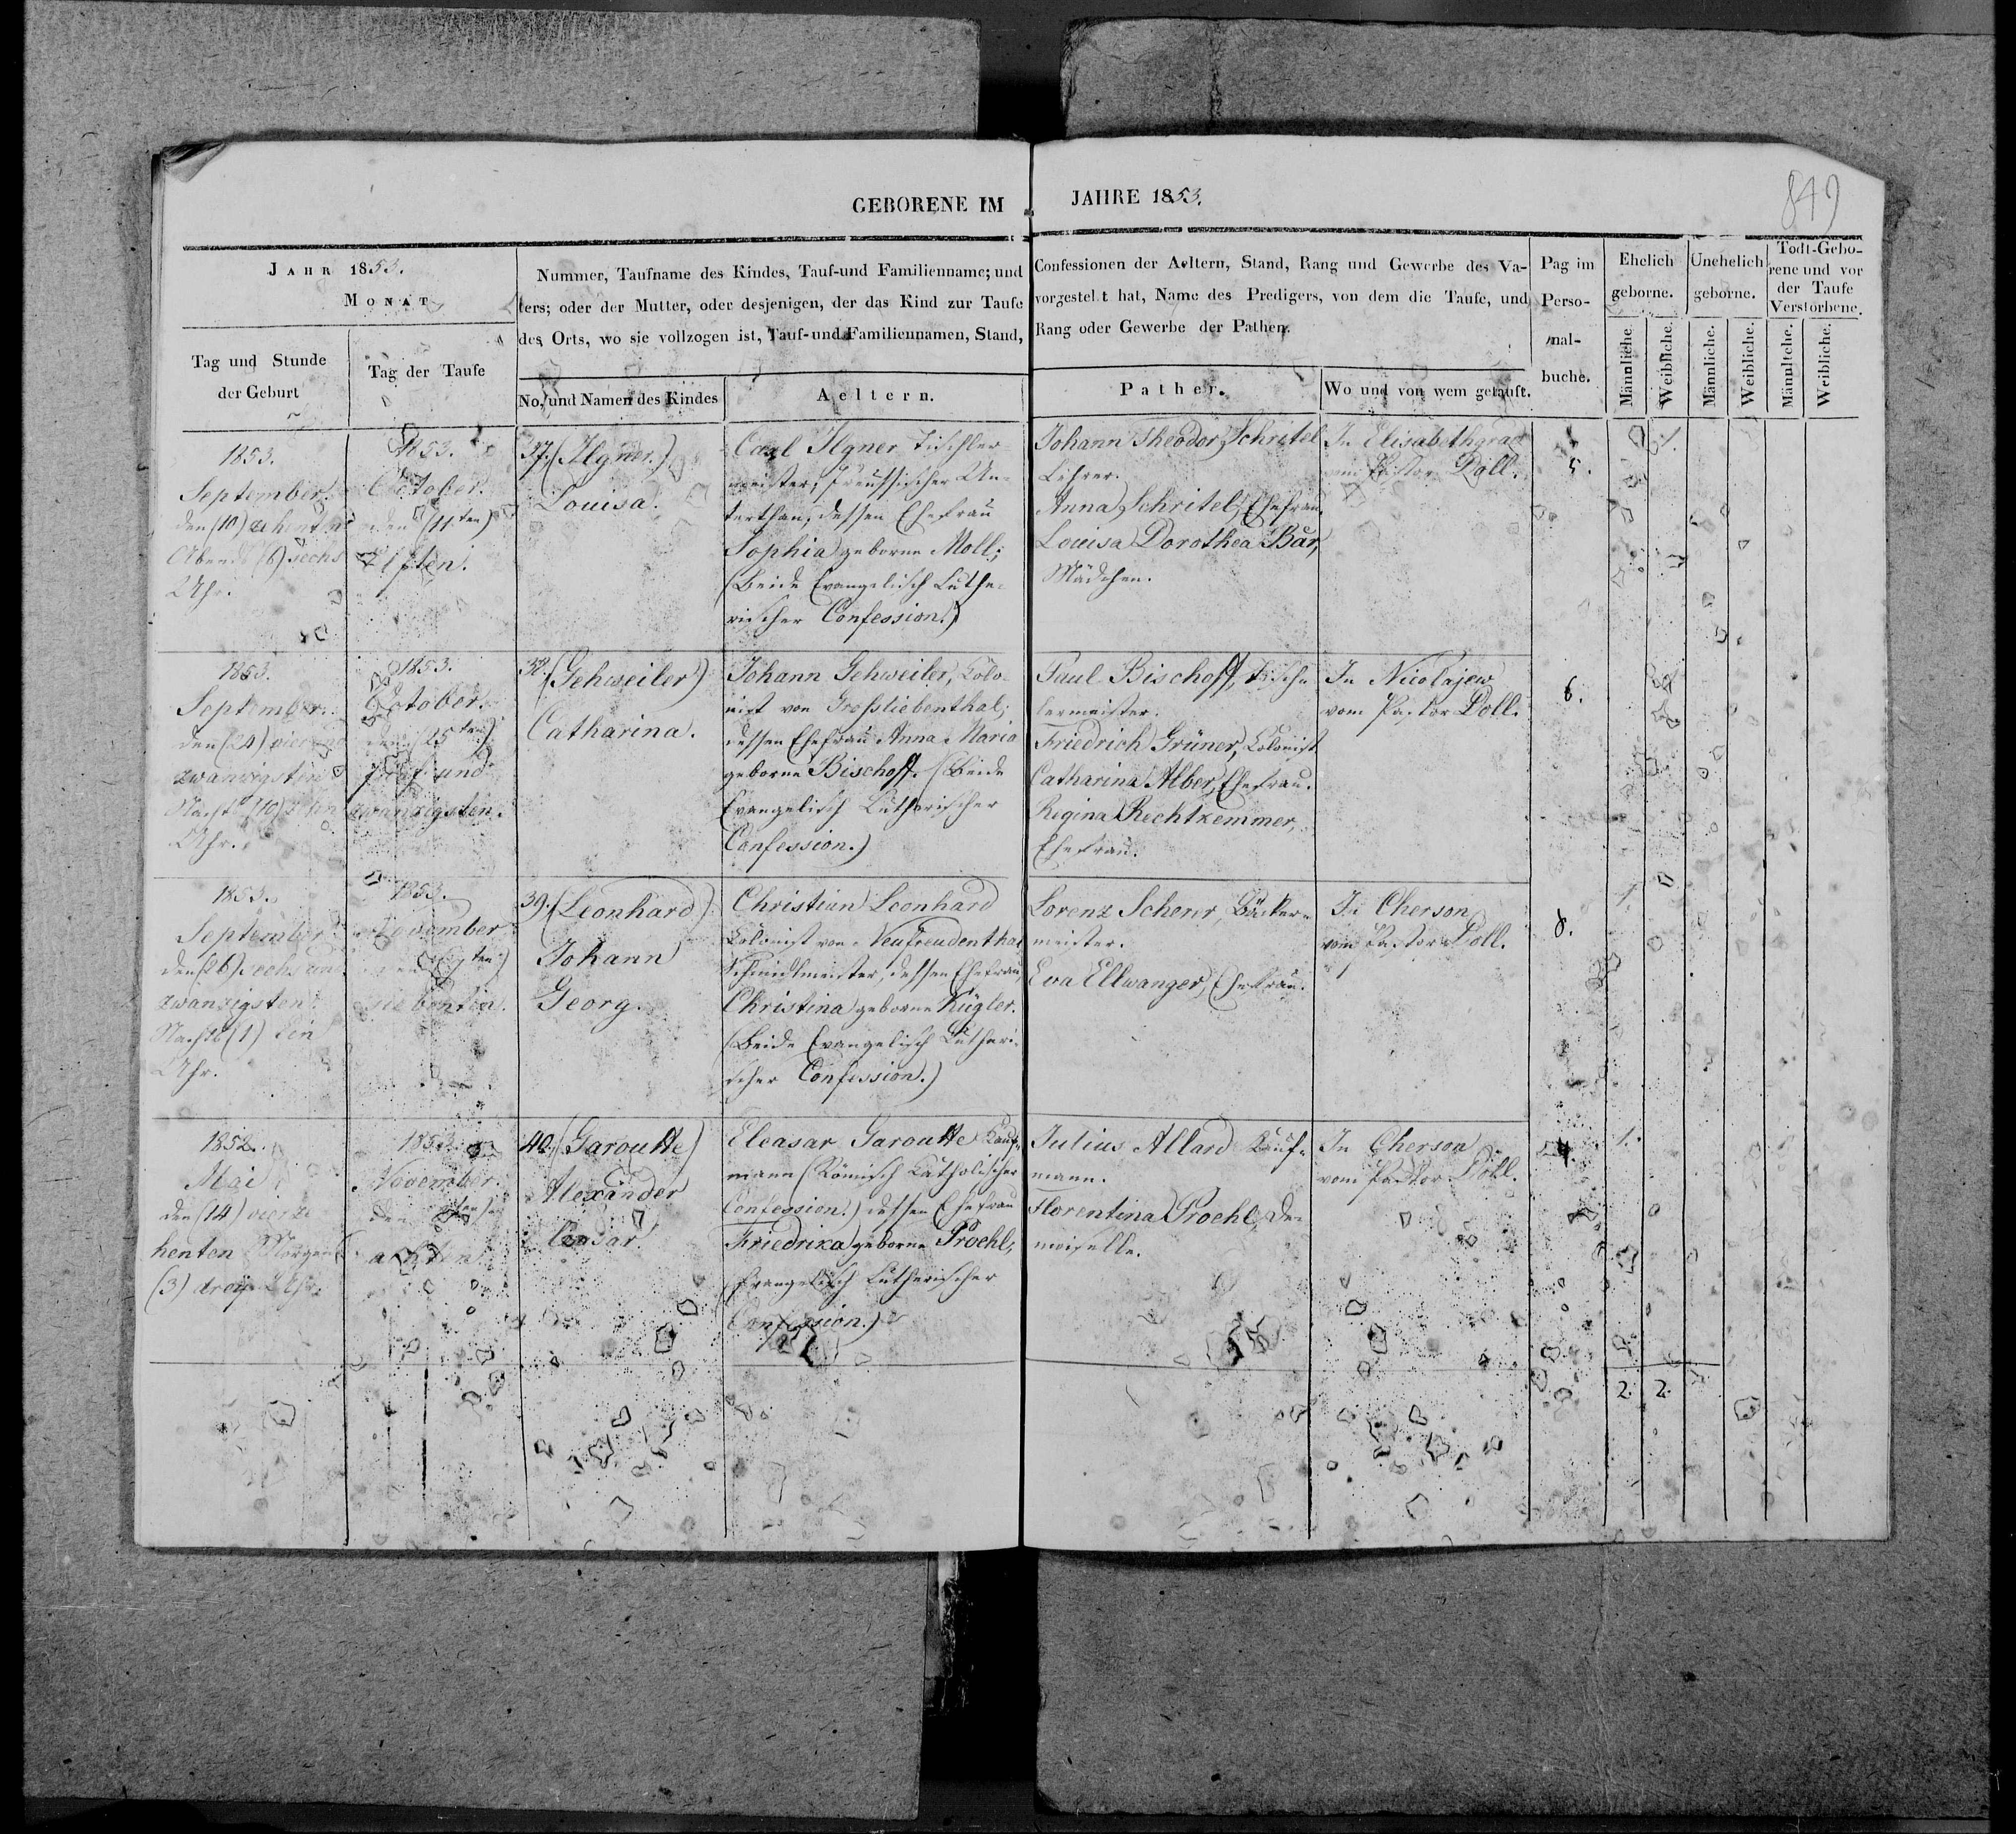 849
GEBORENE IM JAHRE 1853.
JAHR 1853.
MONAT
Tag und Stunde
der Geburt
Tag der Taufe
Nummer, Taufname des Kindes, Tauf-und Familienname; und
ters; oder der Mutter, oder desjenigen, der das Kind zur Taufe
des Orts, wo sie vollzogen ist, Tauf-und Familiennamen, Stand,
No. und Namen des Kindes
Aeltern.
Confessionen der Aeltern, Stand, Rang und Gewerbe des Va-
vorgestellt hat, Name des Predigers, von dem die Taufe, und
Rang oder Gewerbe der Pathen.
Pathen.
Wo und von wem getauft.
Pag im
Perso-
nal-
buche.
Ehelich
geborne.
Unehelich
geborne.
Todt-Gebo-
rene und vor
der Taufe
Verstorbene.
Männliche.
Weibliche.
Männliche.
Weibliche.
Männliche.
Weibliche.
1853.
September.
den (10) zehnten
Abends (6) sechs
Uhr.
1853.
October.
den (11ten)
elften.
37. (Ilgner.)
Louisa.
Carl Ilgner Tischler-
meister, Preussischer Un-
terthan, dessen Ehefrau
Sophia geborne Moll;
(Beide Evangelisch Luthe-
rischer Confession.)
Johann Theodor Schritel
Lehrer.
Anna Schritel, Ehefrau,
Louisa Dorothea Bär,
Mädchen.
In Elisabethgrad
vom Pastor Doll.
5.
1.
1853.
September.
den (24) vier und
zwanzigsten
Nachts (10) zehn
Uhr.
1853.
October.
den (25ten)
fünf und
zwanzigsten.
38. (Gehweiler)
Catharina.
Johann Gehweiler, Colo-
nist von Grossliebenthal;
dessen Ehefrau Anna Maria
geborne Bischoff. (Beide
Evangelisch Lutherischer
Confession.)
Paul Bischoff, Tisch-
lermeister.
Friedrich Grüner, Colonist
Catharina Alber, Ehefrau.
Regina Rechtkemmer,
Ehefrau.
In Nicolajew
vom Pastor Doll.
6.
1853.
September
den (26) sechs und
zwanzigsten
Nachts (1) ein
Uhr.
1853.
November
siebenten.
39. (Leonhard)
Johann
Georg.
Christian Leonhard
Colonist von Neufreudenthal
Schmidtmeister, dessen Ehefrau
Christina geborne Kügler.
(Beide Evangelisch Lutheri-
scher Confession.)
Lorenz Scheur, Bäcker-
meister.
Eva Ellwanger, Ehefrau.
In Cherson
vom Pastor Doll.
8.
1.
1852.
Mai
den (14) vierze
henten Morgens
(3) drey Uhr.
1853.
November.
den
achten.
40. (Garoutte)
Alexander
Eleasar Garoutte Kauf-
mann (Römisch Katholischer
Confession.) dessen Ehefrau
Friedrika geborne Proehl,
(Evangelisch Lutherischer
Confession.)
Julius Allard Kauf-
mann.
Florentina Proehl, De-
moiselle.
In Cherson
vom Pastor Doll.
1.
2. 2.